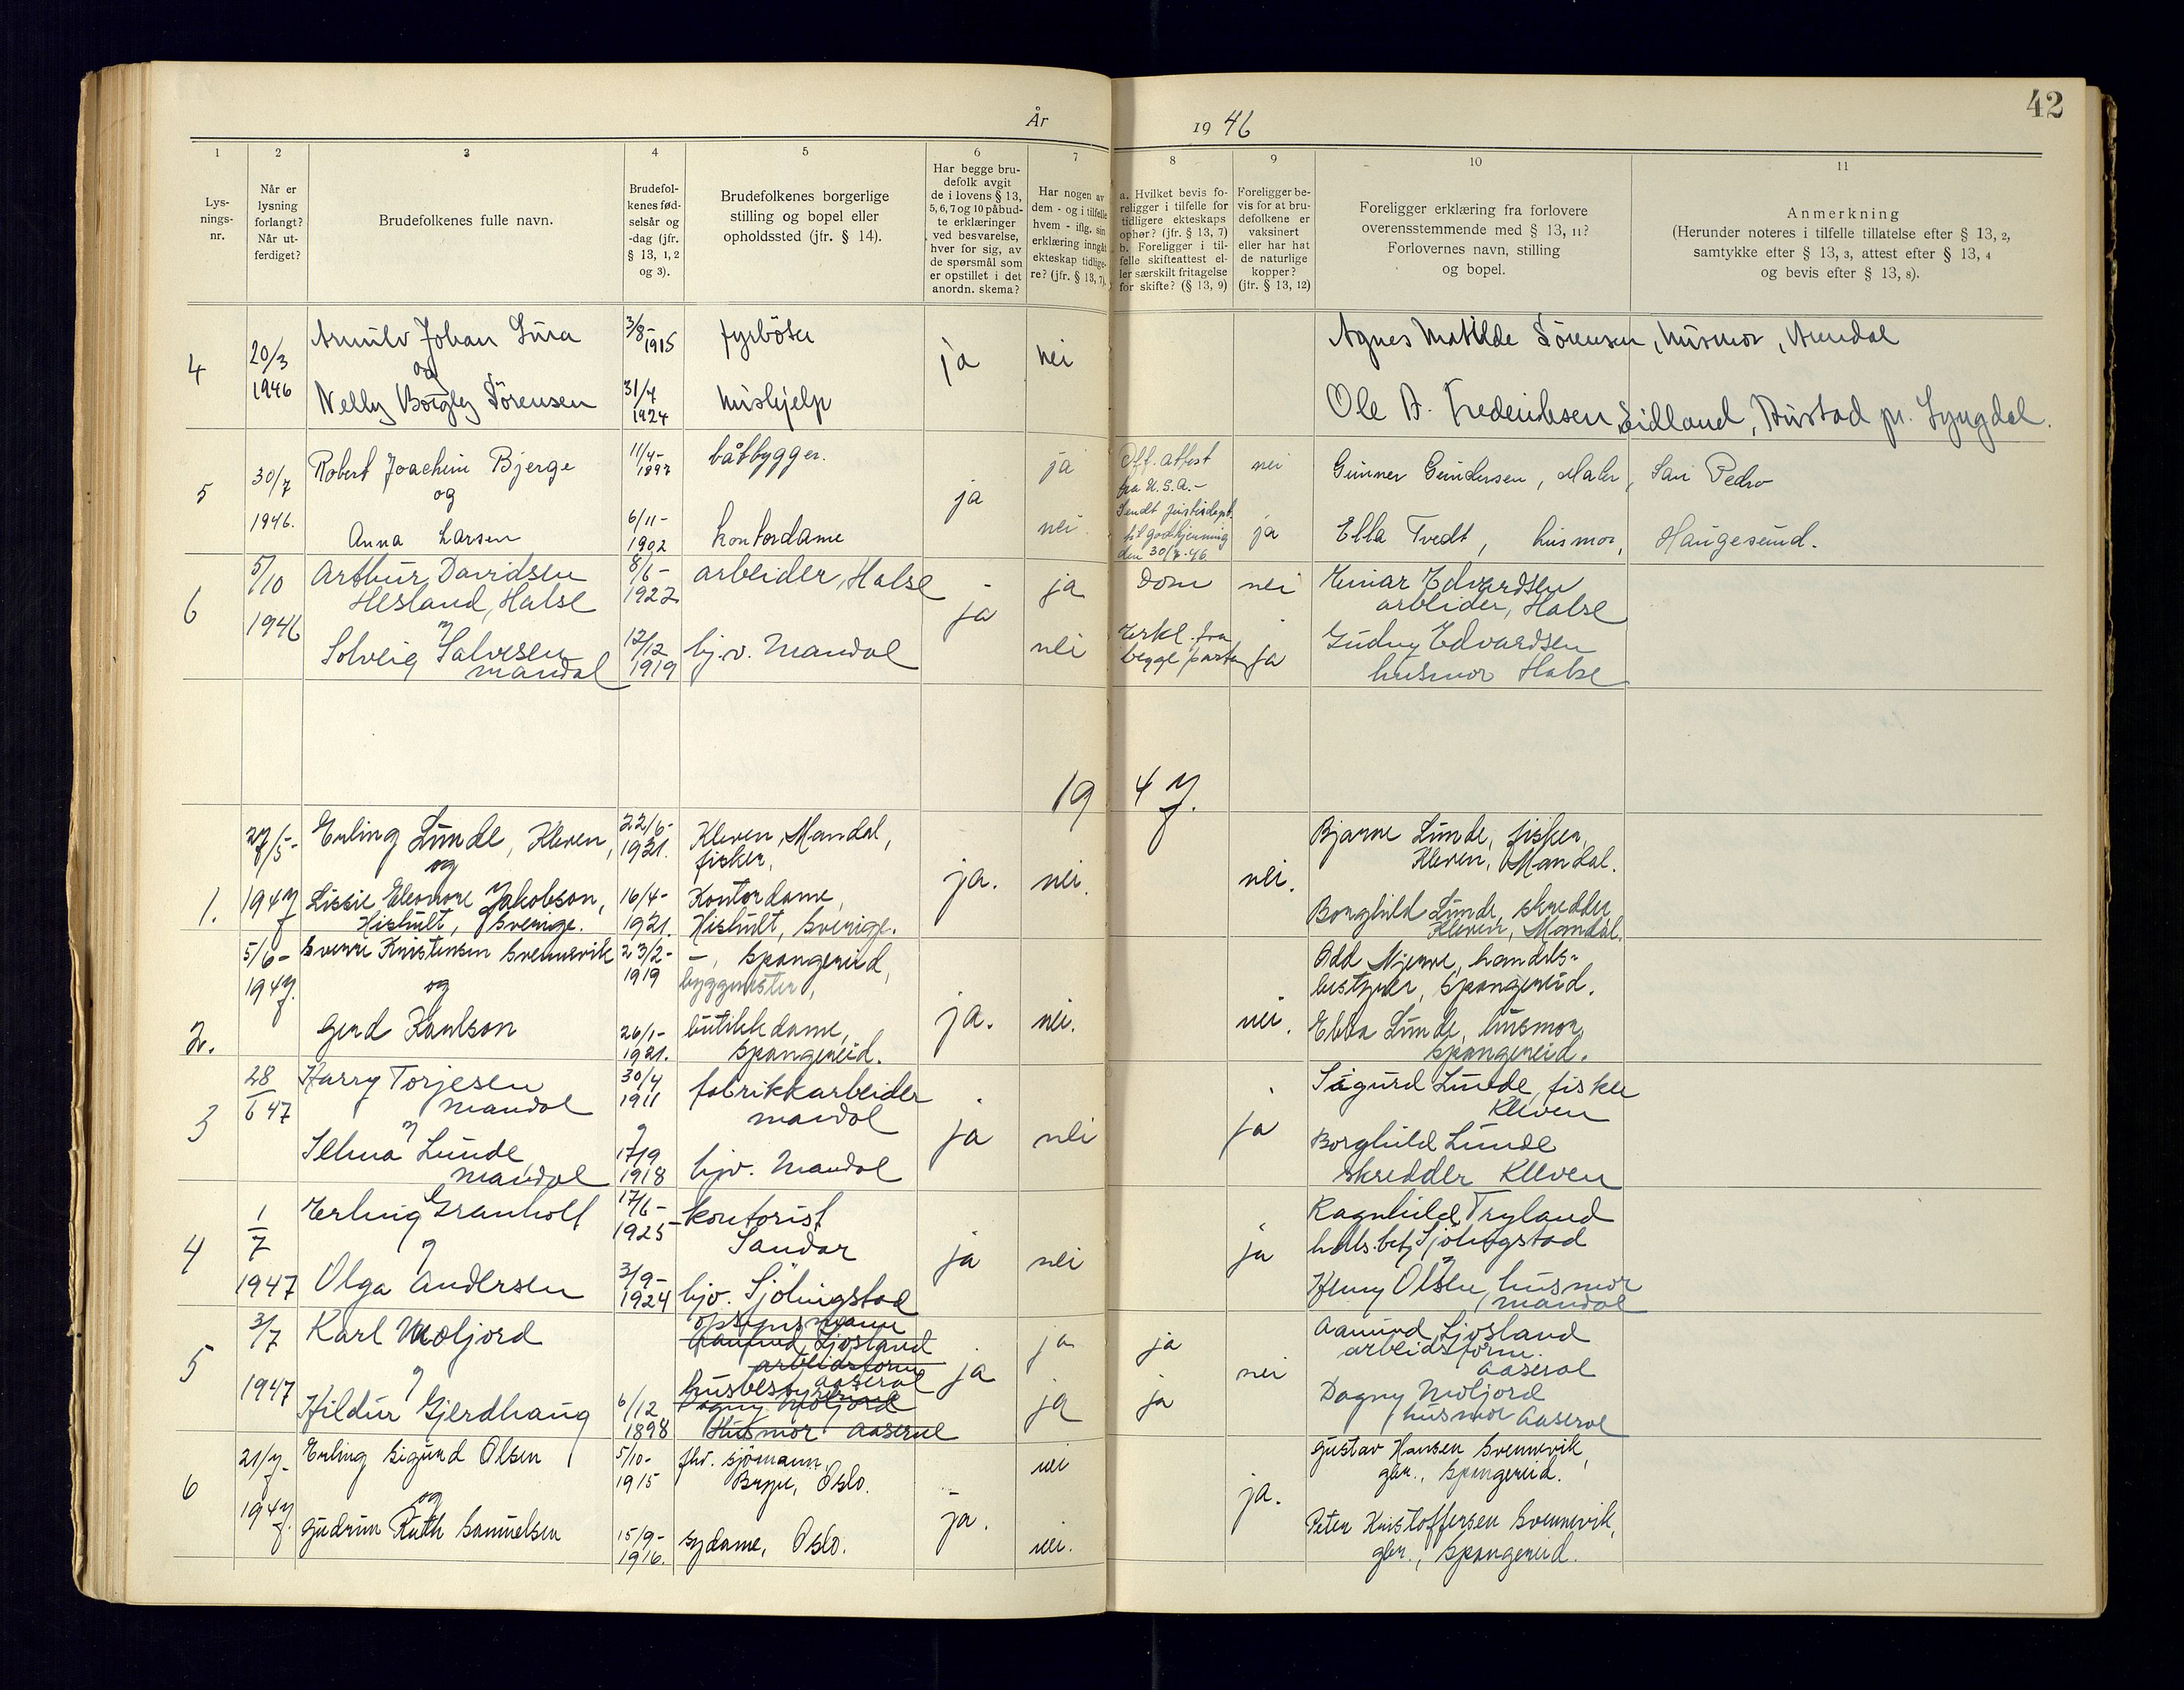 42
År 1946
1 2 3 4 5 6 7 8 9 10 11
Lys-
nings-
nr.
Når er
lysning
forlangt?
Når ut-
ferdiget?
Brudefolkenes fulle navn.
Brudefol-
kenes fød-
selsår og
-dag (jfr.
§ 13, 1, 2
og 3).
Brudefolkenes borgerlige
stilling og bopel eller
opholdssted (jfr. § 14).
Har begge bru-
defolk avgit
de i lovens § 13,
5, 6, 7 og 10 påbud-
te erklæringer
ved besvarelse,
hver for sig, av
de spørsmål som
er opstillet i det
anordn. skema?
Har nogen av
dem - og i tilfelle
hvem - iflg. sin
erklæring inngått
ekteskap tidlige-
re? (jfr. § 13, 7).
a. Hvilket bevis fo-
religger i tilfelle for
tidligere ekteskaps
ophør? (jfr. § 13, 7)
b. Foreligger i til-
felle skifteattest el-
ler særskilt fritagelse
for skifte? (§ 13, 9)
Foreligger be-
vis for at bru-
defolkene er
vaksinert
eller har hat
de naturlige
kopper?
(jfr. § 13, 12)
Foreligger erklæring fra forlovere
overensstemmende med § 13, 11?
Forlovernes navn, stilling
og bopel.
Anmerkning
(Herunder noteres i tilfelle tillatelse efter § 13, 2,
samtykke efter § 13, 3, attest efter § 13, 4
og bevis efter § 13, 8).
4
20/3
1946
Arnulv Johan Lura
og
Nelly Borgly Sörensen
3/8-
1915
31/4
1924
fyrböter
hushjelp
ja
nei
Agnes Matilde Sörensen, husmor, Arendal
Ole A. Frederiksen, Eidland, Austad pr. Lyngdal.
5
30/7
1946.
Robert Joachim Bjerge
og
Anna Larsen
11/4-
1897
6/11-
1902
båtbygger.
kontordame
ja
ja
nei
Off. attest
fra U.S.A.-
Sendt justisdept.
til godkjenning
den 30/7-46
nei
ja
Gunner Gundersen, Maler, San Pedro
Ella Tvedt, husmor, Haugesund.
6
5/10
1946
Arthur Davidsen
Hesland, Halse
Solveig Salvesen
Mandal
8/6-
1922
12/12
1919
arbeider, Halse
hj.v. Mandal
ja
ja
nei
Dom
Erkl. fra
begge parter
nei
ja
Einar Edvardsen
arbeider, Halse
Gudny Edvardsen
husmor Halse
1947.
1.
27/5-
1947
Erling Lunde, Kleven,
og
Lissie Eleonore Jakobson,
Hishult, Sverige.
22/6-
1921.
16/4-
1921.
Kleven, Mandal,
fisker,
Kontordame,
Hishult, Sverige.
ja.
nei.
nei.
Bjarne Lunde, fisker,
Kleven, Mandal.
Borghild Lunde, skredder,
Kleven, Mandal.
2.
5/6-
1947.
Sverre Kristensen Svennevik
og
Gerd Karlson
23/2-
1919
26/1-
1921.
-, Spangereid,
byggmester,
butikkdame,
Spangereid.
ja.
nei.
nei.
Odd Njerve, handels-
bestyrer, Spangereid.
Ebba Lunde, husmor,
Spangereid.
3
28
6 47
Harry Torjesen
Mandal
Selma Lunde
Mandal
30/4
1911
17/9
1918
fabrikkarbeider
Mandal
hjv. Mandal
ja
nei
ja
Sigurd Lunde, fisker
Kleven
Borghild Lunde
skredder Kleven
4
1
7
1947
Erling Granholt
Olga Andersen
17/6-
1925
3/9-
1924
kontorist
Sandar
hjv. Sjölingstad
ja
nei
ja
Ragnhild Tryland
hdls.betj Sjölingstad
Henny Olsen, husmor
Mandal
5
3/7
1947
Karl Moljord
Hildur Gjerdhaug
6/12
1898
opsynsmann
Aamund Ljosland
arbeidsform
Aaseral
husbestyrerinne
Dagny Moljord
Husmor Aaseral
ja
ja
ja
ja
ja
nei
Aamund Ljosland
arbeidsform.
Aaseral
Dagny Moljord
husmor Aaseral
6
21/7-
1947.
Erling Sigurd Olsen
og
Gudrun Ruth Samuelsen
5/10-
1915
15/9-
1916.
fhv. sjömann,
Bryn, Oslo.
sydame, Oslo.
ja.
nei
nei.
ja.
Gustav Hansen Svennevik,
gbr., Spangereid.
Peter Kristoffersen Svennevik,
gbr., Spangereid.